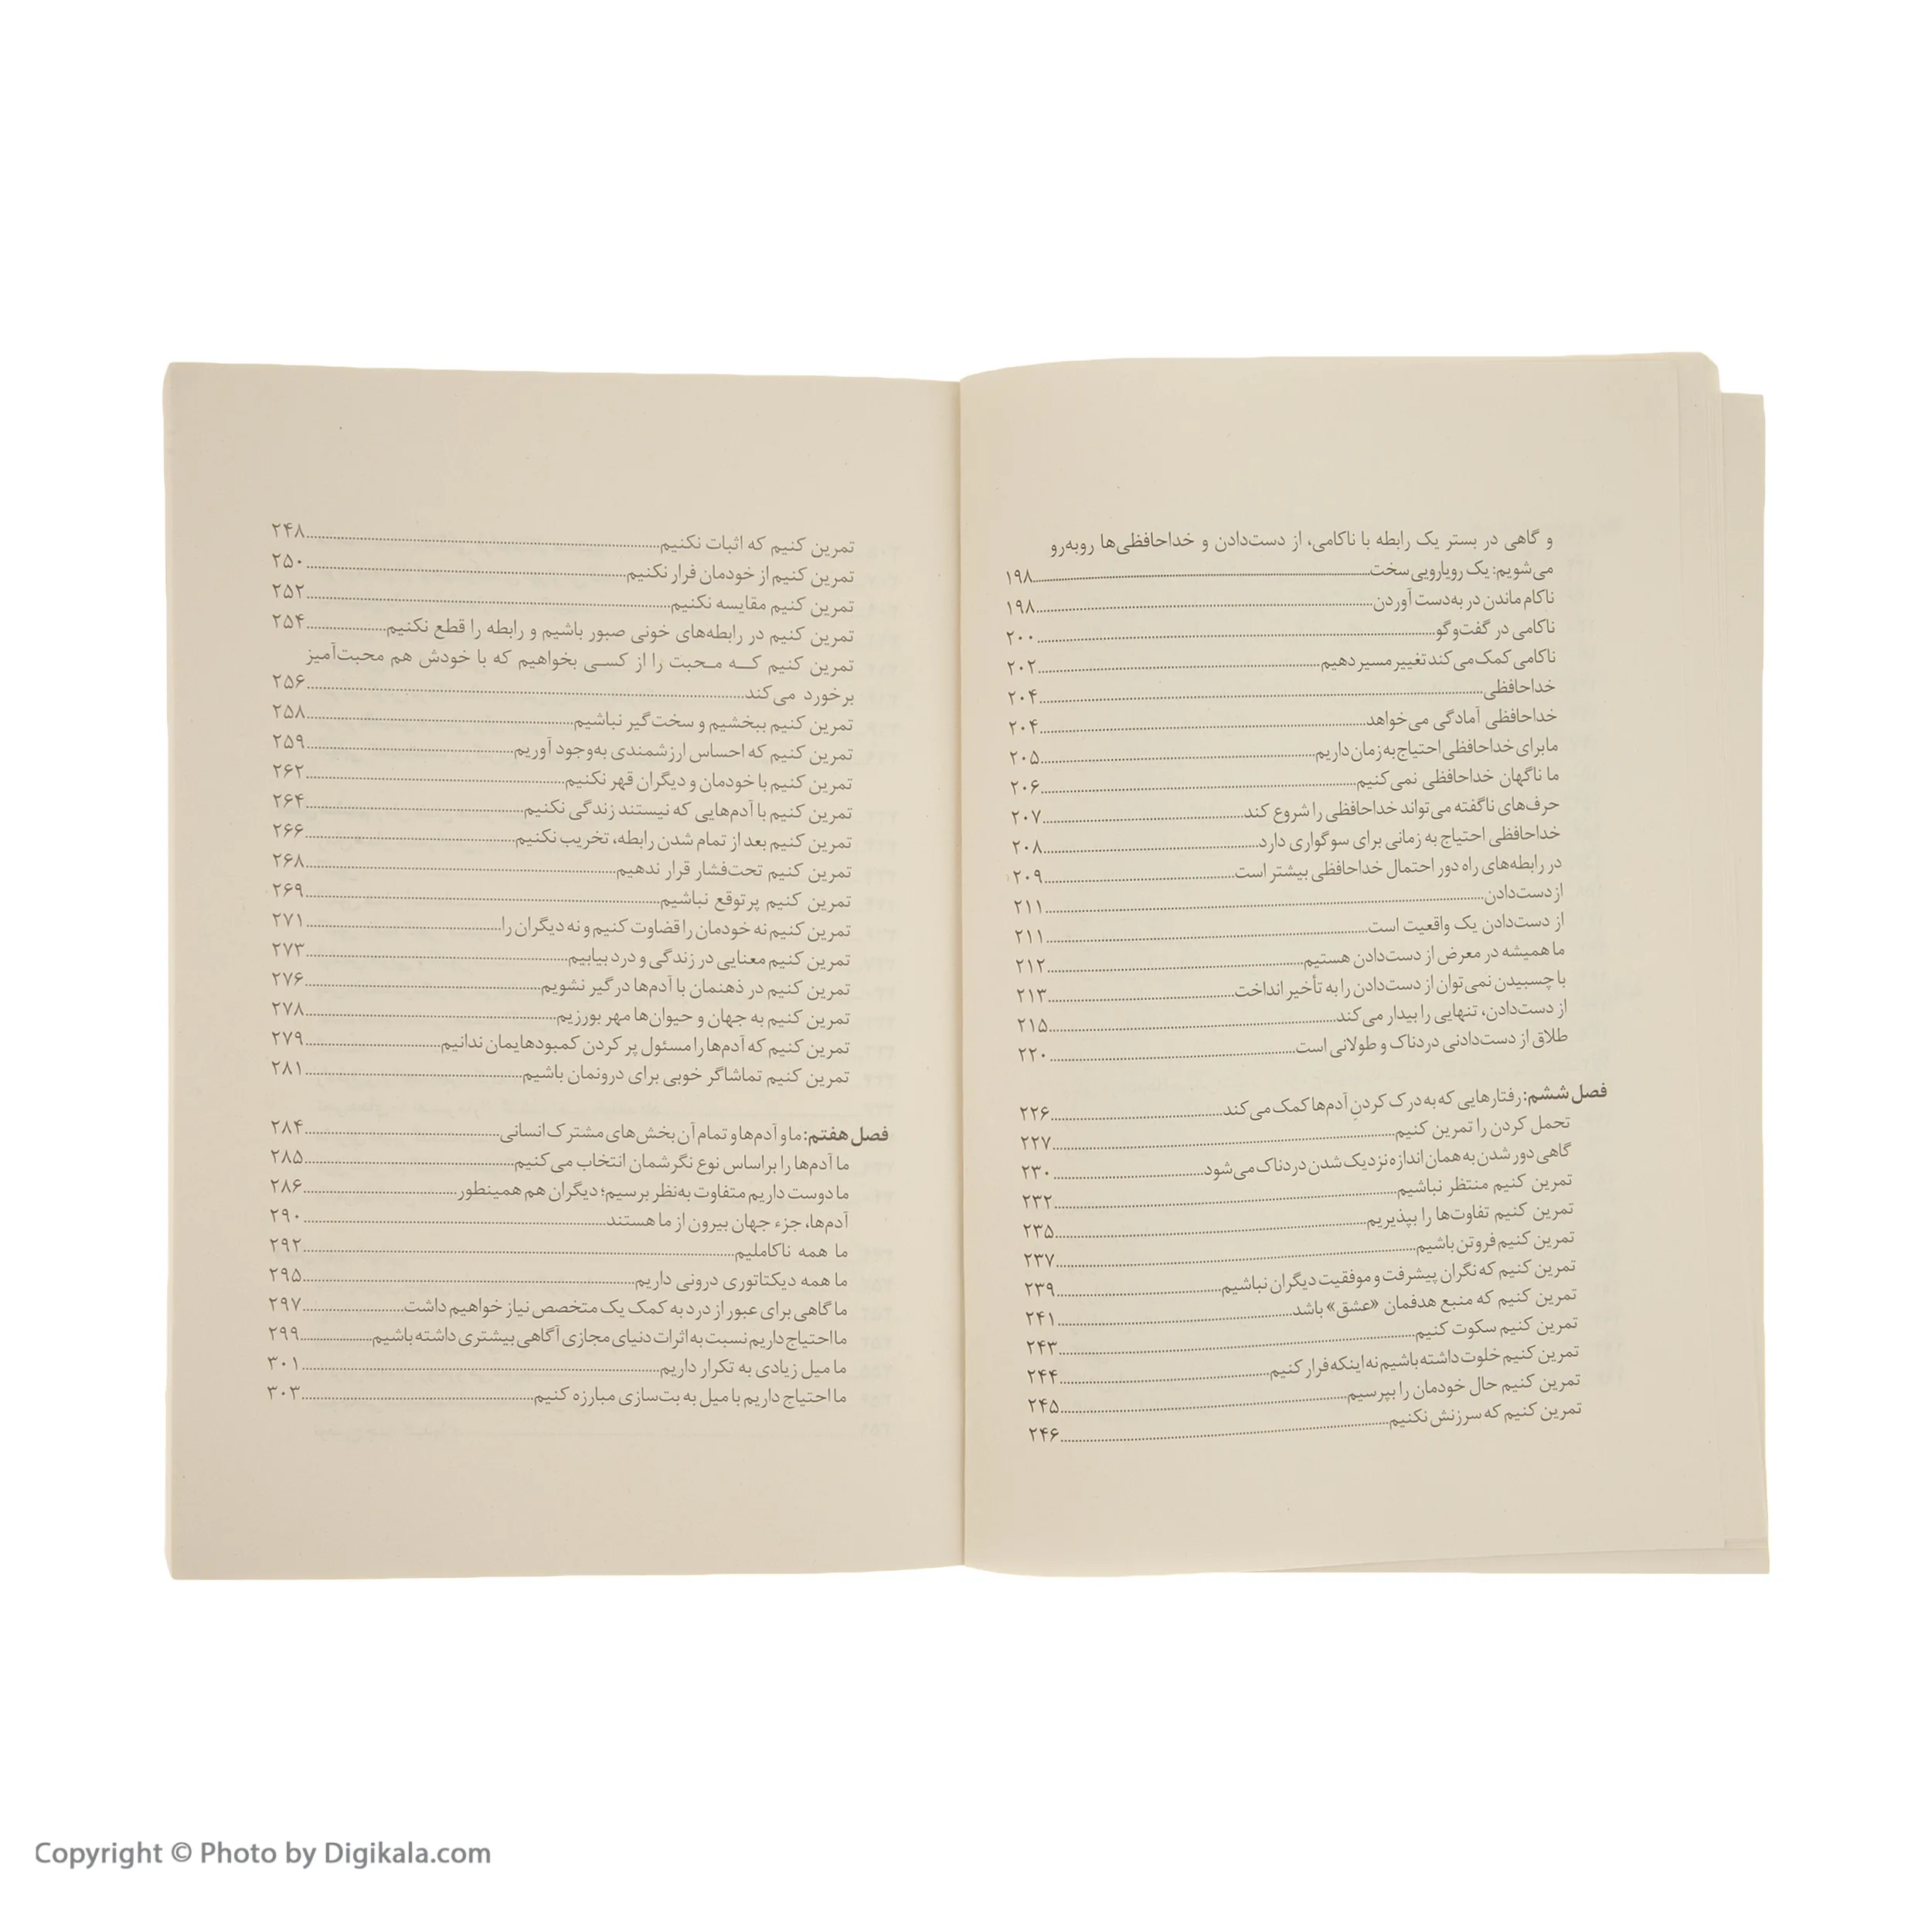 و گاهی در بستر یک رابطه با ناکامی، از دست‌دادن و خداحافظی‌ها روبه‌رو
می‌شویم: یک رویارویی سخت ۱۹۸
ناکام ماندن در به‌دست آوردن ۱۹۸
ناکامی در گفت‌وگو ۲۰۰
ناکامی کمک می‌کند تغییر مسیر دهیم ۲۰۲
خداحافظی ۲۰۴
خداحافظی آمادگی می‌خواهد ۲۰۴
ما برای خداحافظی احتیاج به زمان داریم ۲۰۵
ما ناگهان خداحافظی نمی‌کنیم ۲۰۶
حرف‌های ناگفته می‌تواند خداحافظی را شروع کند ۲۰۷
خداحافظی احتیاج به زمانی برای سوگواری دارد ۲۰۸
در رابطه‌های راه دور احتمال خداحافظی بیشتر است ۲۰۹
از دست‌دادن ۲۱۱
از دست‌دادن یک واقعیت است ۲۱۱
ما همیشه در معرض از دست‌دادن هستیم ۲۱۲
با چسبیدن نمی‌توان از دست‌دادن را به تأخیر انداخت ۲۱۳
از دست‌دادن، تنهایی را بیدار می‌کند ۲۱۵
طلاق از دست‌دادنی دردناک و طولانی است ۲۲۰
فصل ششم: رفتارهایی که به درک کردنِ آدم‌ها کمک می‌کند ۲۲۶
تحمل کردن را تمرین کنیم ۲۲۷
گاهی دور شدن به همان اندازه نزدیک شدن دردناک می‌شود ۲۳۰
تمرین کنیم منتظر نباشیم ۲۳۲
تمرین کنیم تفاوت‌ها را بپذیریم ۲۳۵
تمرین کنیم فروتن باشیم ۲۳۷
تمرین کنیم که نگران پیشرفت و موفقیت دیگران نباشیم ۲۳۹
تمرین کنیم که منبع هدفمان «عشق» باشد ۲۴۱
تمرین کنیم سکوت کنیم ۲۴۳
تمرین کنیم خلوت داشته باشیم نه اینکه فرار کنیم ۲۴۴
تمرین کنیم حال خودمان را بپرسیم ۲۴۵
تمرین کنیم که سرزنش نکنیم ۲۴۶
تمرین کنیم که اثبات نکنیم ۲۴۸
تمرین کنیم از خودمان فرار نکنیم ۲۵۰
تمرین کنیم مقایسه نکنیم ۲۵۲
تمرین کنیم در رابطه‌های خونی صبور باشیم و رابطه را قطع نکنیم ۲۵۴
تمرین کنیم که محبت را از کسی بخواهیم که با خودش هم محبت‌آمیز
برخورد می‌کند ۲۵۶
تمرین کنیم ببخشیم و سخت‌گیر نباشیم ۲۵۸
تمرین کنیم که احساس ارزشمندی به‌وجود آوریم ۲۵۹
تمرین کنیم با خودمان و دیگران قهر نکنیم ۲۶۲
تمرین کنیم با آدم‌هایی که نیستند زندگی نکنیم ۲۶۴
تمرین کنیم بعد از تمام شدن رابطه، تخریب نکنیم ۲۶۶
تمرین کنیم تحت‌فشار قرار ندهیم ۲۶۸
تمرین کنیم پرتوقع نباشیم ۲۶۹
تمرین کنیم نه خودمان را قضاوت کنیم و نه دیگران را ۲۷۱
تمرین کنیم معنایی در زندگی و درد بیابیم ۲۷۳
تمرین کنیم در ذهنمان با آدم‌ها درگیر نشویم ۲۷۶
تمرین کنیم به جهان و حیوان‌ها مهر بورزیم ۲۷۸
تمرین کنیم که آدم‌ها را مسئول پر کردن کمبودهایمان ندانیم ۲۷۹
تمرین کنیم تماشاگر خوبی برای درونمان باشیم ۲۸۱
فصل هفتم: ما و آدم‌ها و تمام آن بخش‌های مشترک انسانی ۲۸۴
ما آدم‌ها را براساس نوع نگرشمان انتخاب می‌کنیم ۲۸۵
ما دوست داریم متفاوت به‌نظر برسیم؛ دیگران هم همینطور ۲۸۶
آدم‌ها، جزء جهان بیرون از ما هستند ۲۹۰
ما همه ناکاملیم ۲۹۲
ما همه دیکتاتوری درونی داریم ۲۹۵
ما گاهی برای عبور از درد به کمک یک متخصص نیاز خواهیم داشت ۲۹۷
ما احتیاج داریم نسبت به اثرات دنیای مجازی آگاهی بیشتری داشته باشیم ۲۹۹
ما میل زیادی به تکرار داریم ۳۰۱
ما احتیاج داریم با میل به بت‌سازی مبارزه کنیم ۳۰۳
Copyright © Photo by Digikala.com